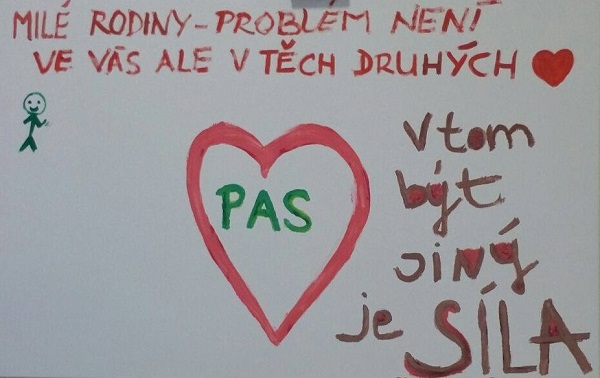 MILÉ RODINY - PROBLÉM NENÍ
VE VÁS ALE V TĚCH DRUHÝCH
PAS
V tom
být
jiný
je SÍLA